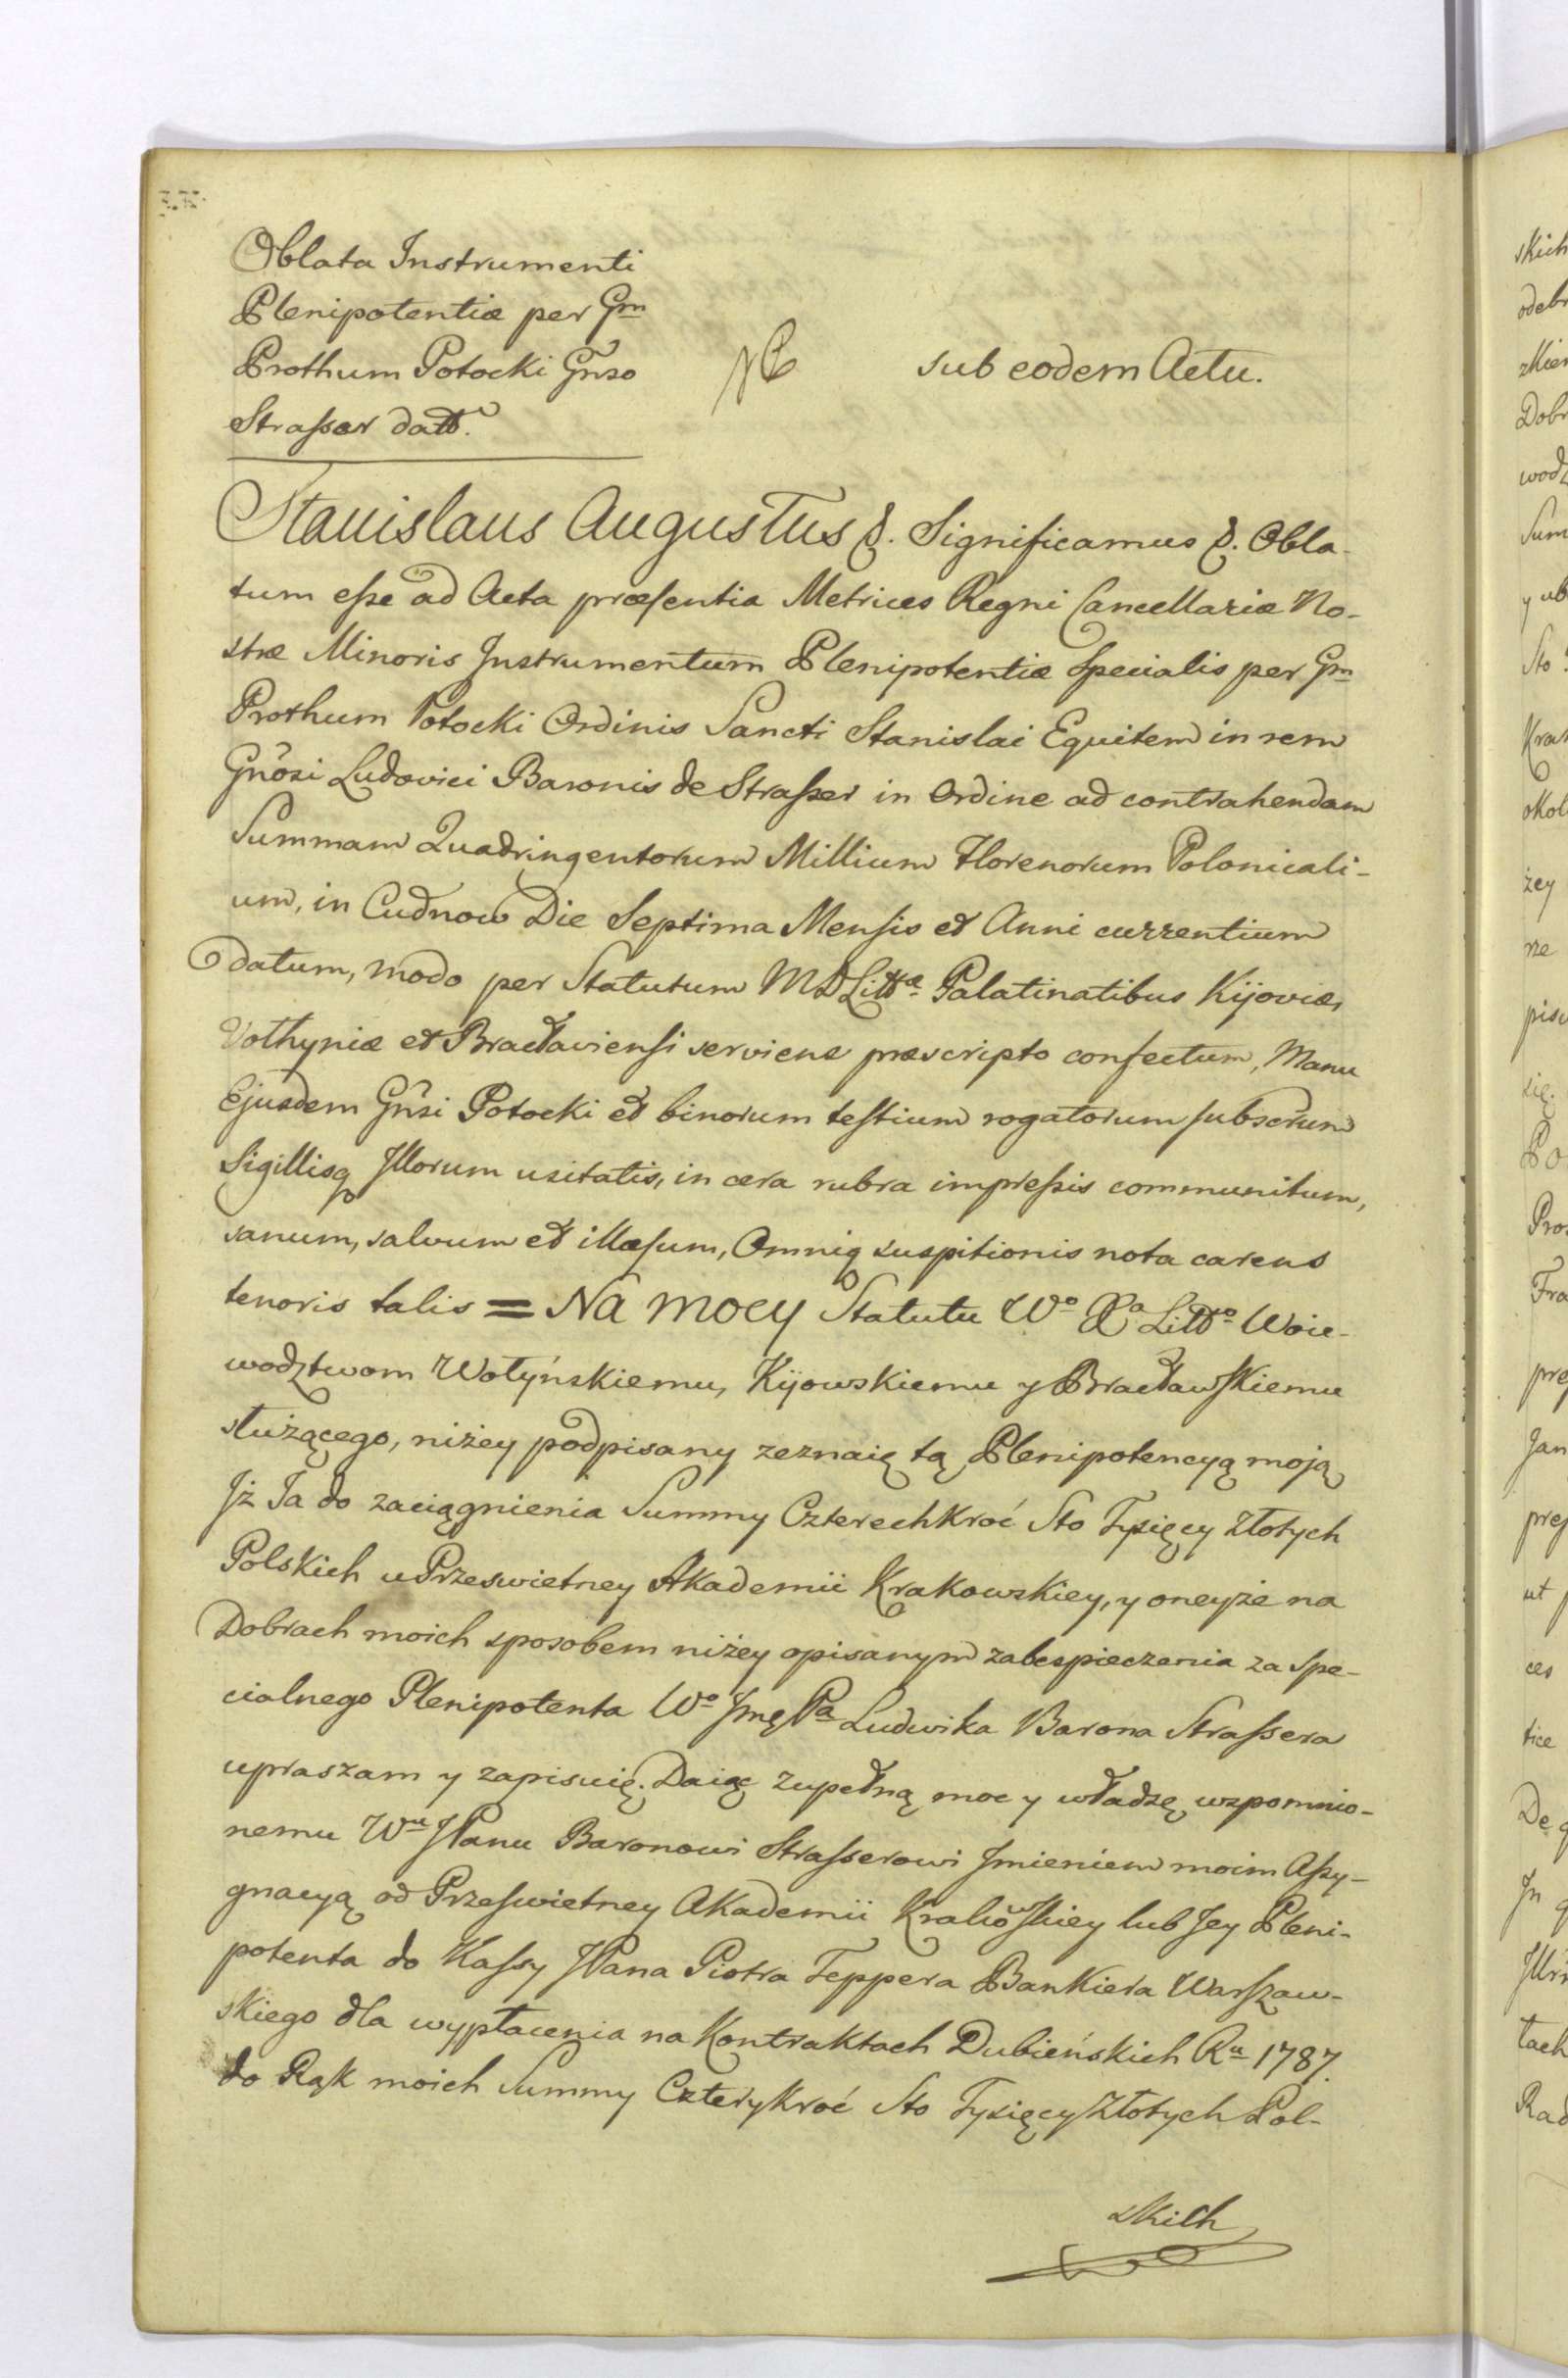 Oblata Instrumenti
Plenipotentiæ per Gm̄
Prothum Potocki Gn̄so
Strasser datt.
sub eodem Actu.
Stanislaus Augustus &. Significamus &. Obla-
tum esse ad Acta præsentia Metrices Regni Cancellariæ No-
stræ Minoris Instrumentum Plenipotentiæ Specialis per Gm̄
Prothum Potocki Ordinis Sancti Stanislai Equitem in rem
Gn̄osi Ludovici Baronis de Strasser in Ordine ad contrahendam
Summam Quadringentorum Millium Florenorum Polonicali-
um, in Cudnow Die Septima Mensis et Anni currentium
datum, modo per Statutum MDLittæ Palatinatibus Kijoviæ,
Volhyniæ et Bracłaviensi serviens præscripto confectum, Manu
Ejusdem Gn̄si Potocki et binorum testium rogatorum subscrum
Sigillisq Illorum usitatis, in cera rubra impressis communitum,
sanum, salvum et illæsum, Omniq suspitionis nota carens
tenoris talis = Na mocy Statutu Wo Xa Litto Woie-
wodztwom Wołyńskiemu, Kijowskiemu y Bracławskiemu
służącego, niżey podpisany zeznaię tą Plenipotencyą moją
Iż Ja do zaciągnienia Summy Czterechkroć Sto Tysięcy Złotych
Polskich u Przeswietney Akademii Krakowskiey, y oneyże na
Dobrach moich sposobem niżey opisanym zabespieczenia za Spe-
cialnego Plenipotenta Wo Jmę Pa Ludwika Barona Strassera
upraszam y zapisuię. Daiąc zupełną moc y władzę wspomnio-
nemu Wu JPanu Baronowi Strasserowi Imieniem moim Assy-
gnacyą od Przeswietney Akademii Krakowskiey lub Jey Pleni-
potenta do Kassy JPana Piotra Teppera Bankiera Warszaw-
skiego dla wypłacenia na Kontraktach Dubieńskich Ru 1787.
do Rąk moich Summy Czterykroć Sto Tysięcy Złotych Pol-
skich